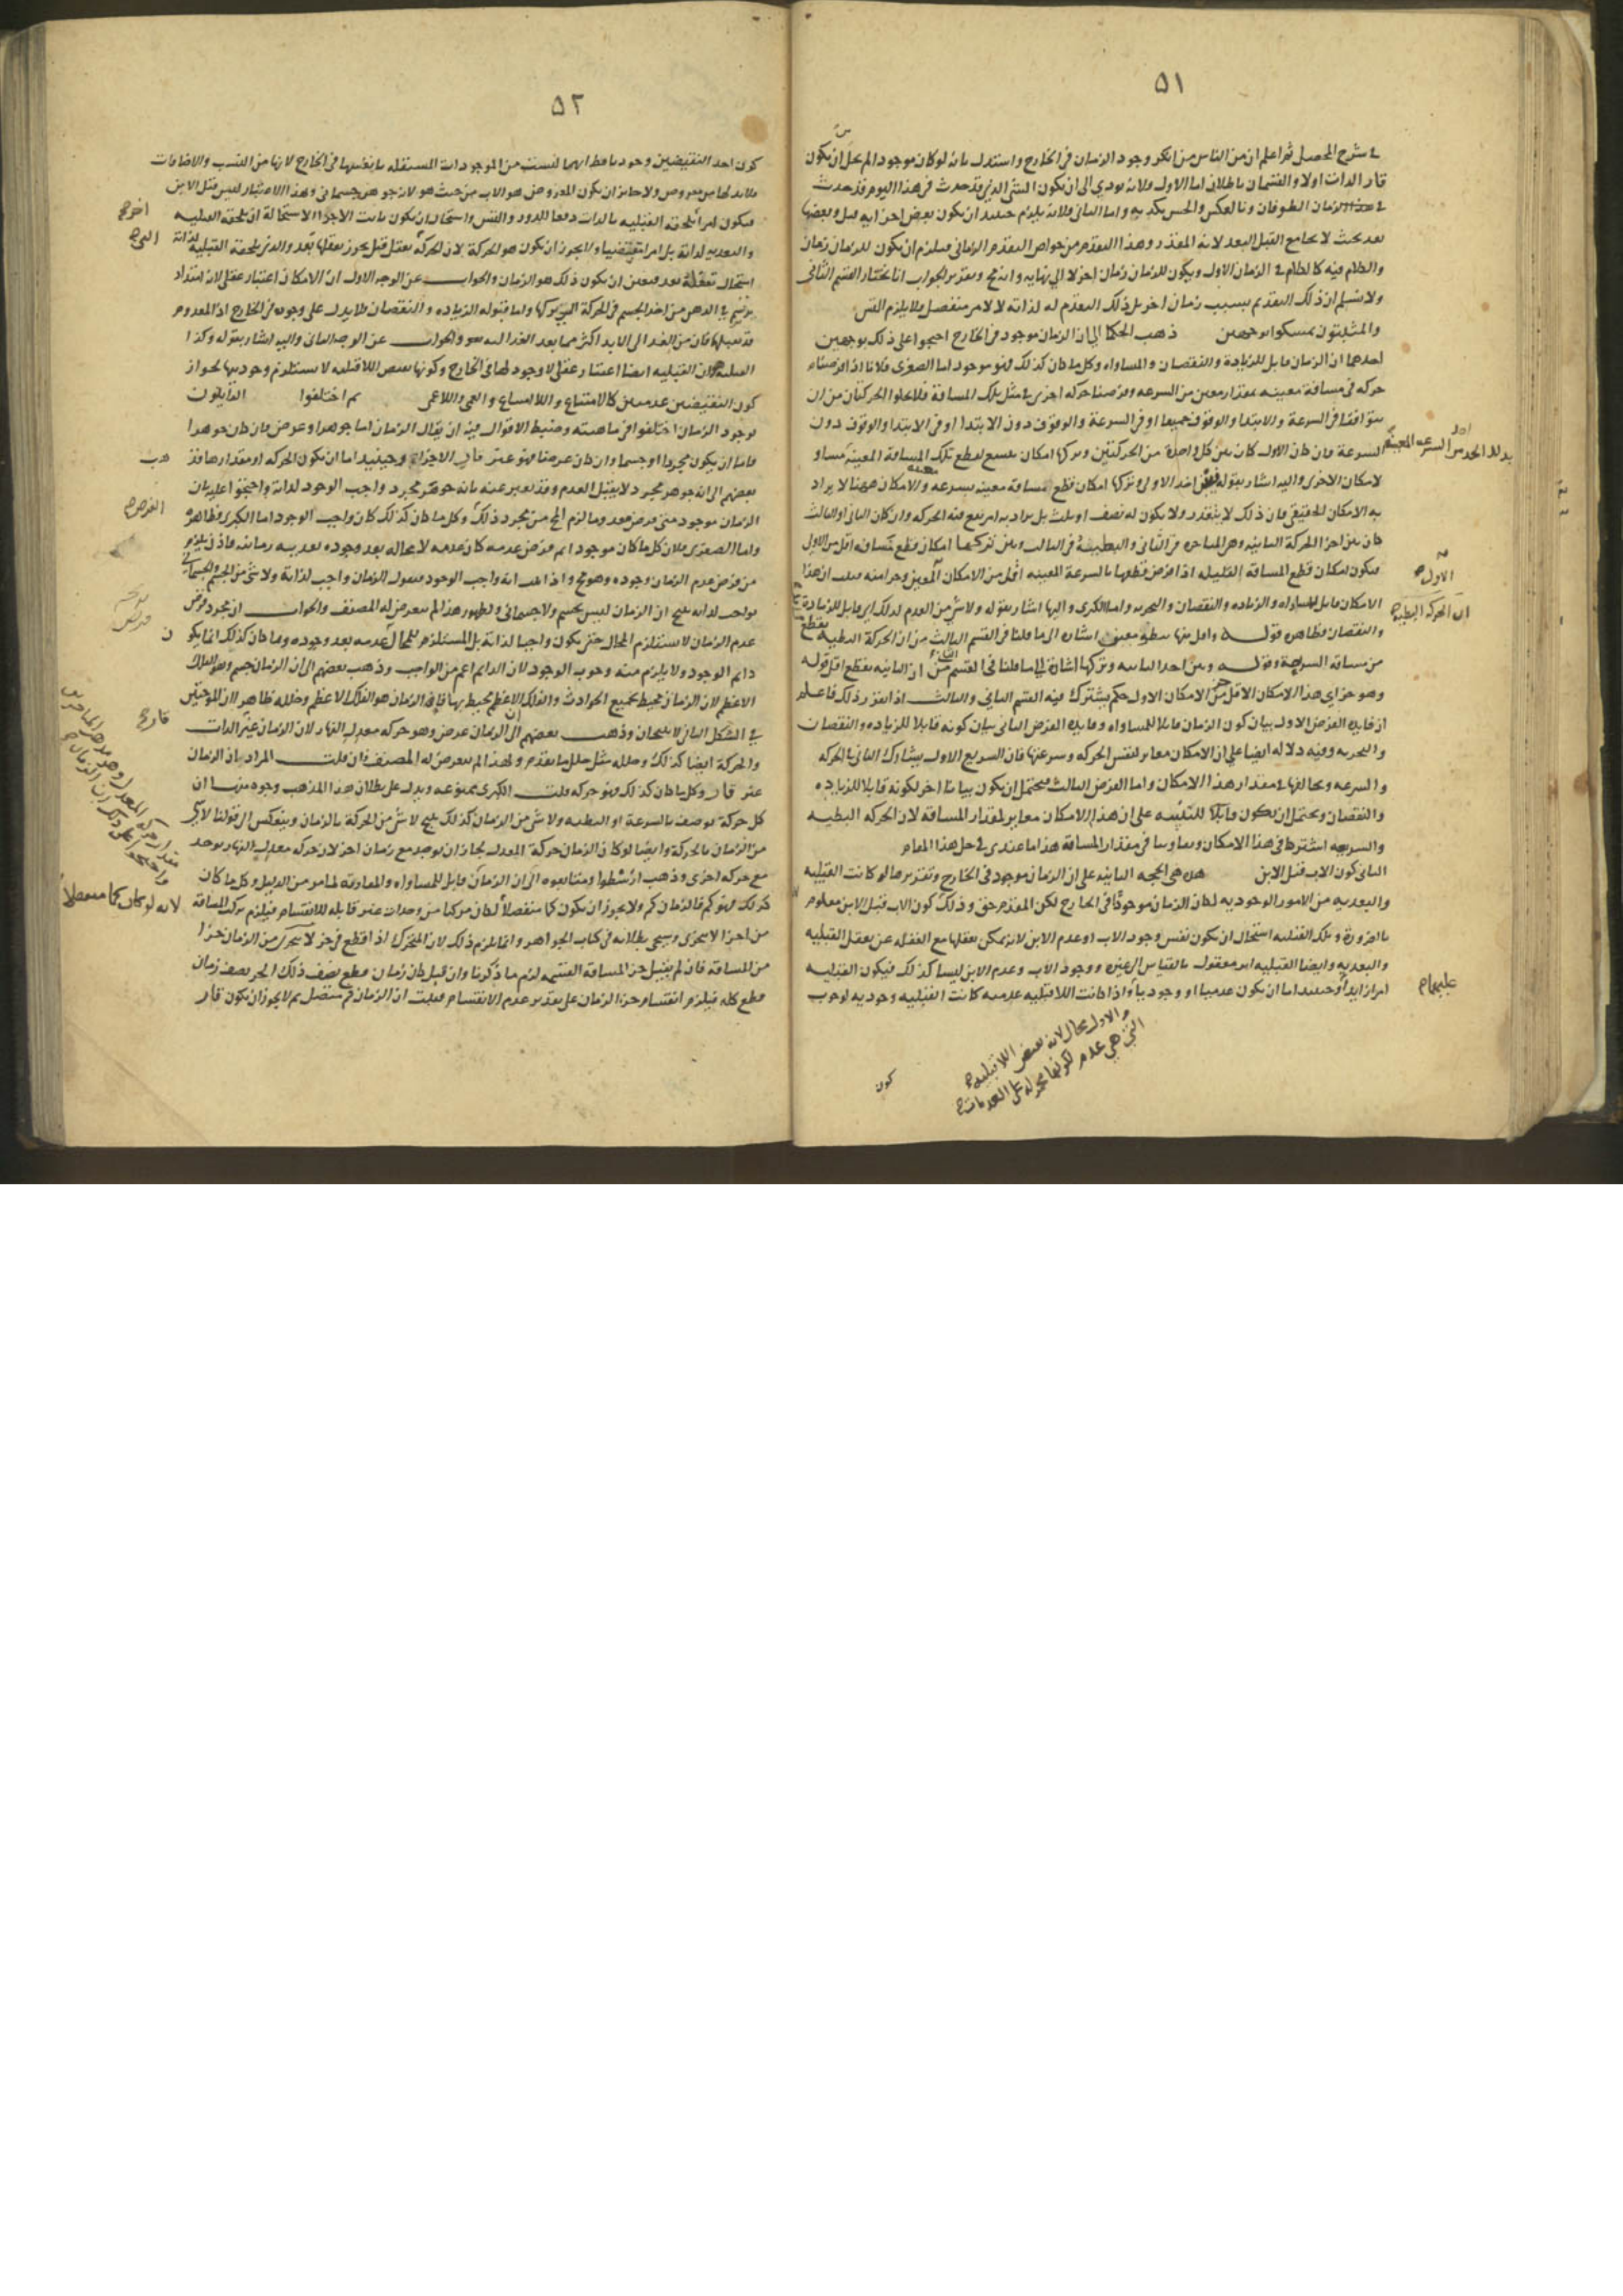 ٥١
في شرح المحصل ثم اعلم ان من الناس من انكر وجود الزمان في الخارج واستدل بانه لو كان موجودا لم يخل ان يكون
قار الذات اولا والقسمان باطلان اما الاول فلانه يودي الى ان يكون الشئ الذي قد حدث في هذا اليوم قد حدث
في زمان الطوفان وبالعكس والحس يكذبه واما الثاني فلانه يلزم حينئذ ان يكون بعض اجزايه قبل وبعضها
بعد بحيث لا يجامع القبل البعد لانه المقدر وهذا التقدم من خواص التقدم الزماني فيلزم ان يكون للزمان زمان
والكلام فيه كالكلام في الزمان الاول ويكون للزمان زمان اخر لا الى نهايه وانه مح وتقرير الجواب انا نختار القسم الثاني
ولا نسلم ان ذلك التقدم بسبب زمان اخر بل ذلك التقدم له لذاته لا لامر منفصل فلا يلزم التس
والمثبتون تمسكوا بوجهين ذهب الحكما الى ان الزمان موجود في الخارج احتجوا على ذلك بوجهين
احدهما ان الزمان قابل للزيادة والنقصان والمساواه وكل ما كان كذلك فهو موجود اما الصغرى فلانا اذا فرضنا
حركه في مسافة معينه بمقدار معين من السرعه وفرضنا حركه اخرى في مثل تلك المسافة فلا تخلو الحركتان من ان
تتوافقا في السرعة والابتدا والوقوف جميعا او في السرعة والوقوف دون الابتدا او في الابتدا والوقوف دون
السرعة فان كان الاول كان بين كل واحدة من الحركتين وتركها امكان يتسع لقطع تلك المسافة المعينة مساو
لامكان الاخرى واليه اشار بقوله بين اخذ الاولى وتركها امكان قطع مسافة معينه بسرعه والامكان ههنا لا يراد
به الامكان الحقيقي فان ذلك لا يتقدر ولا يكون له نصف او ثلث بل يراد به امر تقع فيه الحركه وان كان الثاني او الثالث
كان بين اخذ الحركة الثانيه وهي المتاخره في الثاني والبطيئة في الثالث وبين تركهما امكان قطع مسافه اقل من الاول
فيكون امكان قطع المسافة القليله اذا فرض قطعها بالسرعة المعينه اقل من الامكان المعين وجزا منه فثبت ان هذا
الامكان قابل للمساواه والزياده والنقصان والتجزيه واما الكبرى واليها اشار بقوله ولا شئ من العدم كذلك اي قابل للزيادة
والنقصان فظاهره قوله واقل منها ببطو معين اشاره الى ما قلنا في القسم الثالث من ان الحركة البطيه تقطع
من مسافة السريعة وقوله وبين اخذ الثانيه وتركها اشارة الى ما قلنا في القسم الثاني من ان الثانيه تقطع اقل قوله
وهو جزاي هذا الامكان الاقل جز من الامكان الاول حكم يشترك فيه القسم الثاني والثالث اذا تقرر ذلك فاعلم
ان فايده الفرض الاول بيان كون الزمان قابلا للمساواه وفايده الفرض الثاني بيان كونه قابلا للزياده والنقصان
والتجزيه وفيه دلاله ايضا على ان الامكان مغاير لنفس الحركه وسرعتها فان السريع الاول يشارك الثاني بالحركه
والسرعه ويخالفها في مقدار هذا الامكان واما الفرض الثالث فيحتمل ان يكون بيانا اخر لكونه قابلا للزياده
والنقصان ويحتمل ان يكون قابلا للتنبيه على ان هذا الامكان مغاير لمقدار المسافة لان الحركه البطيه
والسريعه اشتركا في هذا الامكان في مقدار المسافة هذا ما عندي في حل هذا المقام
الثاني كون الاب قبل الابن هذه هي الحجه الثانيه على ان الزمان موجود في الخارج وتقريرها لو كانت القبليه
والبعديه من الامور الوجوديه لكان الزمان موجودا في الخارج لكن المقدم حق وذلك كون الاب قبل الابن معلوم
بالضرورة وتلك القبليه استحال ان يكون نفس وجود الاب او عدم الابن لانه يمكن تعقلها مع الغفله عن تعقل القبليه
والبعديه وايضا القبليه امر معقول بالقياس الى غيره ووجود الاب وعدم الابن ليسا كذلك فيكون القبليه
امرا زايدا وحينئذ اما ان يكون عدميا او وجوديا واذا كانت اللاقبليه عدميه كانت القبليه وجوديه لوجوب
والاول محال لانه نقيض اللاقبليه
التي هي عدم لكونها محموله على العدمات
كون
الاول
ان الحركه البطيه
عليهما
٥٢
كون احد النقيضين وجوديا فظ انهما ليست من الموجودات المستقله بانفسها في الخارج لانها من النسب والاضافات
فلا بد لها من معروض ولا جايز ان يكون المعروض هو الاب من حيث هو لانه جوهر جسماني وبهذا الاعتبار ليس قبل الابن
فيكون امرا تلحقه القبليه بالذات دفعا للدور والتس واستحال ان يكون ثابت الاجزا لاستحالة ان تلحقه القبليه
والبعديه لذاته بل امرا متقضيا ولا يجوز ان يكون هو الحركة لان الحركة تعقل قبل يجوز تعقلها بعد والذي تلحقه القبليه لذاته
استحال تعقله بعد فتعين ان يكون ذلك هو الزمان والجواب عن الوجه الاول ان الامكان اعتبار عقلي لانه امتداد
يرتسم في الذهن من اخذ الجسم في الحركة الى تركها واما قبوله الزياده والنقصان فلا يدل على وجوده في الخارج اذ المعدوم
قد يقبلها فان من الغد الى الابد اكثر مما بعد الغد اليه والجواب عن الوجه الثاني واليه اشار بقوله وكذا
القبليه فان القبليه ايضا اعتبار عقلي لا وجود لها في الخارج وكونها نقيض اللاقبليه لا يستلزم وجوديها لجواز
كون النقيضين عدميين كالامتناع واللاامتناع والعمى واللاعمى ثم اختلفوا القايلون
بوجود الزمان اختلفوا في ماهيته وضبط الاقوال فيه ان يقال الزمان اما جوهر او عرض فان كان جوهرا
فاما ان يكون مجردا او جسما وان كان عرضا فهو غير قار الاجزا وحينئذ اما ان يكون الحركه او مقدارها فذهب
بعضهم الى انه جوهر مجرد لا يقبل العدم وقد يعبر عنه بانه جوهر مجرد واجب الوجود لذاته واحتجوا عليه بان
الزمان موجود متى فرض عدمه لزم المح من مجرد ذلك وكل ما كان كذلك كان واجب الوجود اما الكبرى فظاهرة
واما الصغرى فلان كل ما كان موجودا ثم فرض عدمه كان عدمه لا محاله بعد وجوده بعديه زمانيه فاذن يلزم
من فرض عدم الزمان وجوده وهو مح واذا ثبت انه واجب الوجود فنقول الزمان واجب لذاته ولا شئ من الجسم والجسماني
بواجب لذاته ينتج ان الزمان ليس بجسم ولا جسماني ولظهور هذا لم يتعرض له المصنف والجواب ان مجرد فرض
عدم الزمان لا يستلزم المحال حتى يكون واجبا لذاته بل المستلزم للمحال عدمه بعد وجوده وما كان كذلك انما يكون
دايم الوجود ولا يلزم منه وجوب الوجود لان الدايم اعم من الواجب وذهب بعضهم الى ان الزمان جسم وهو الفلك
الاعظم لان الزمان محيط بجميع الحوادث والفلك الاعظم محيط بها فاذن الزمان هو الفلك الاعظم وخلله ظاهر اذ الموجبتين
في الشكل الثاني لا ينتجان وذهب بعضهم الى ان الزمان عرض وهو حركه معدل النهار لان الزمان غير قار الذات
والحركة ايضا كذلك وخلله مثل خلل ما تقدم ولهذا لم يتعرض له المصنف فان قلت المراد بان الزمان
غير قار وكل ما كان كذلك فهو حركه قلت الكبرى ممنوعه ويدل على بطلان هذا المذهب وجوه منها ان
كل حركة توصف بالسرعة او البطء ولا شئ من الزمان كذلك ينتج لا شئ من الحركة بالزمان وينعكس الى قولنا لا شئ
من الزمان بالحركة وايضا لو كان الزمان حركة المعدل لجاز ان يوجد مع زمان اخر لان حركه معدل النهار توجد
مع حركه اخرى وذهب ارسطوا ومتابعوه الى ان الزمان قابل للمساواه والمفاوته لما مر من الدليل وكل ما كان
كذلك فهو كم فالزمان كم ولا يجوز ان يكون كما منفصلا لكان مركبا من وحدات غير قابله للانقسام فيلزم تركب المسافة
من اجزا لا تتجزى وسيجي بطلانه في كتاب الجواهر وانما لزم ذلك لان المتحرك اذا قطع في جز لا يتجزى من الزمان جزا
من المسافة فان لم يقبل جز المسافة القسمه لزم ما ذكرنا وان قبل كان زمان قطع نصف ذلك الجز نصف زمان
قطع كله فيلزم انقسام جزا الزمان على تقدير عدم الانقسام فثبت ان الزمان كم متصل ثم لا يجوز ان يكون قار
قار
لانه لو كان كما منفصلا